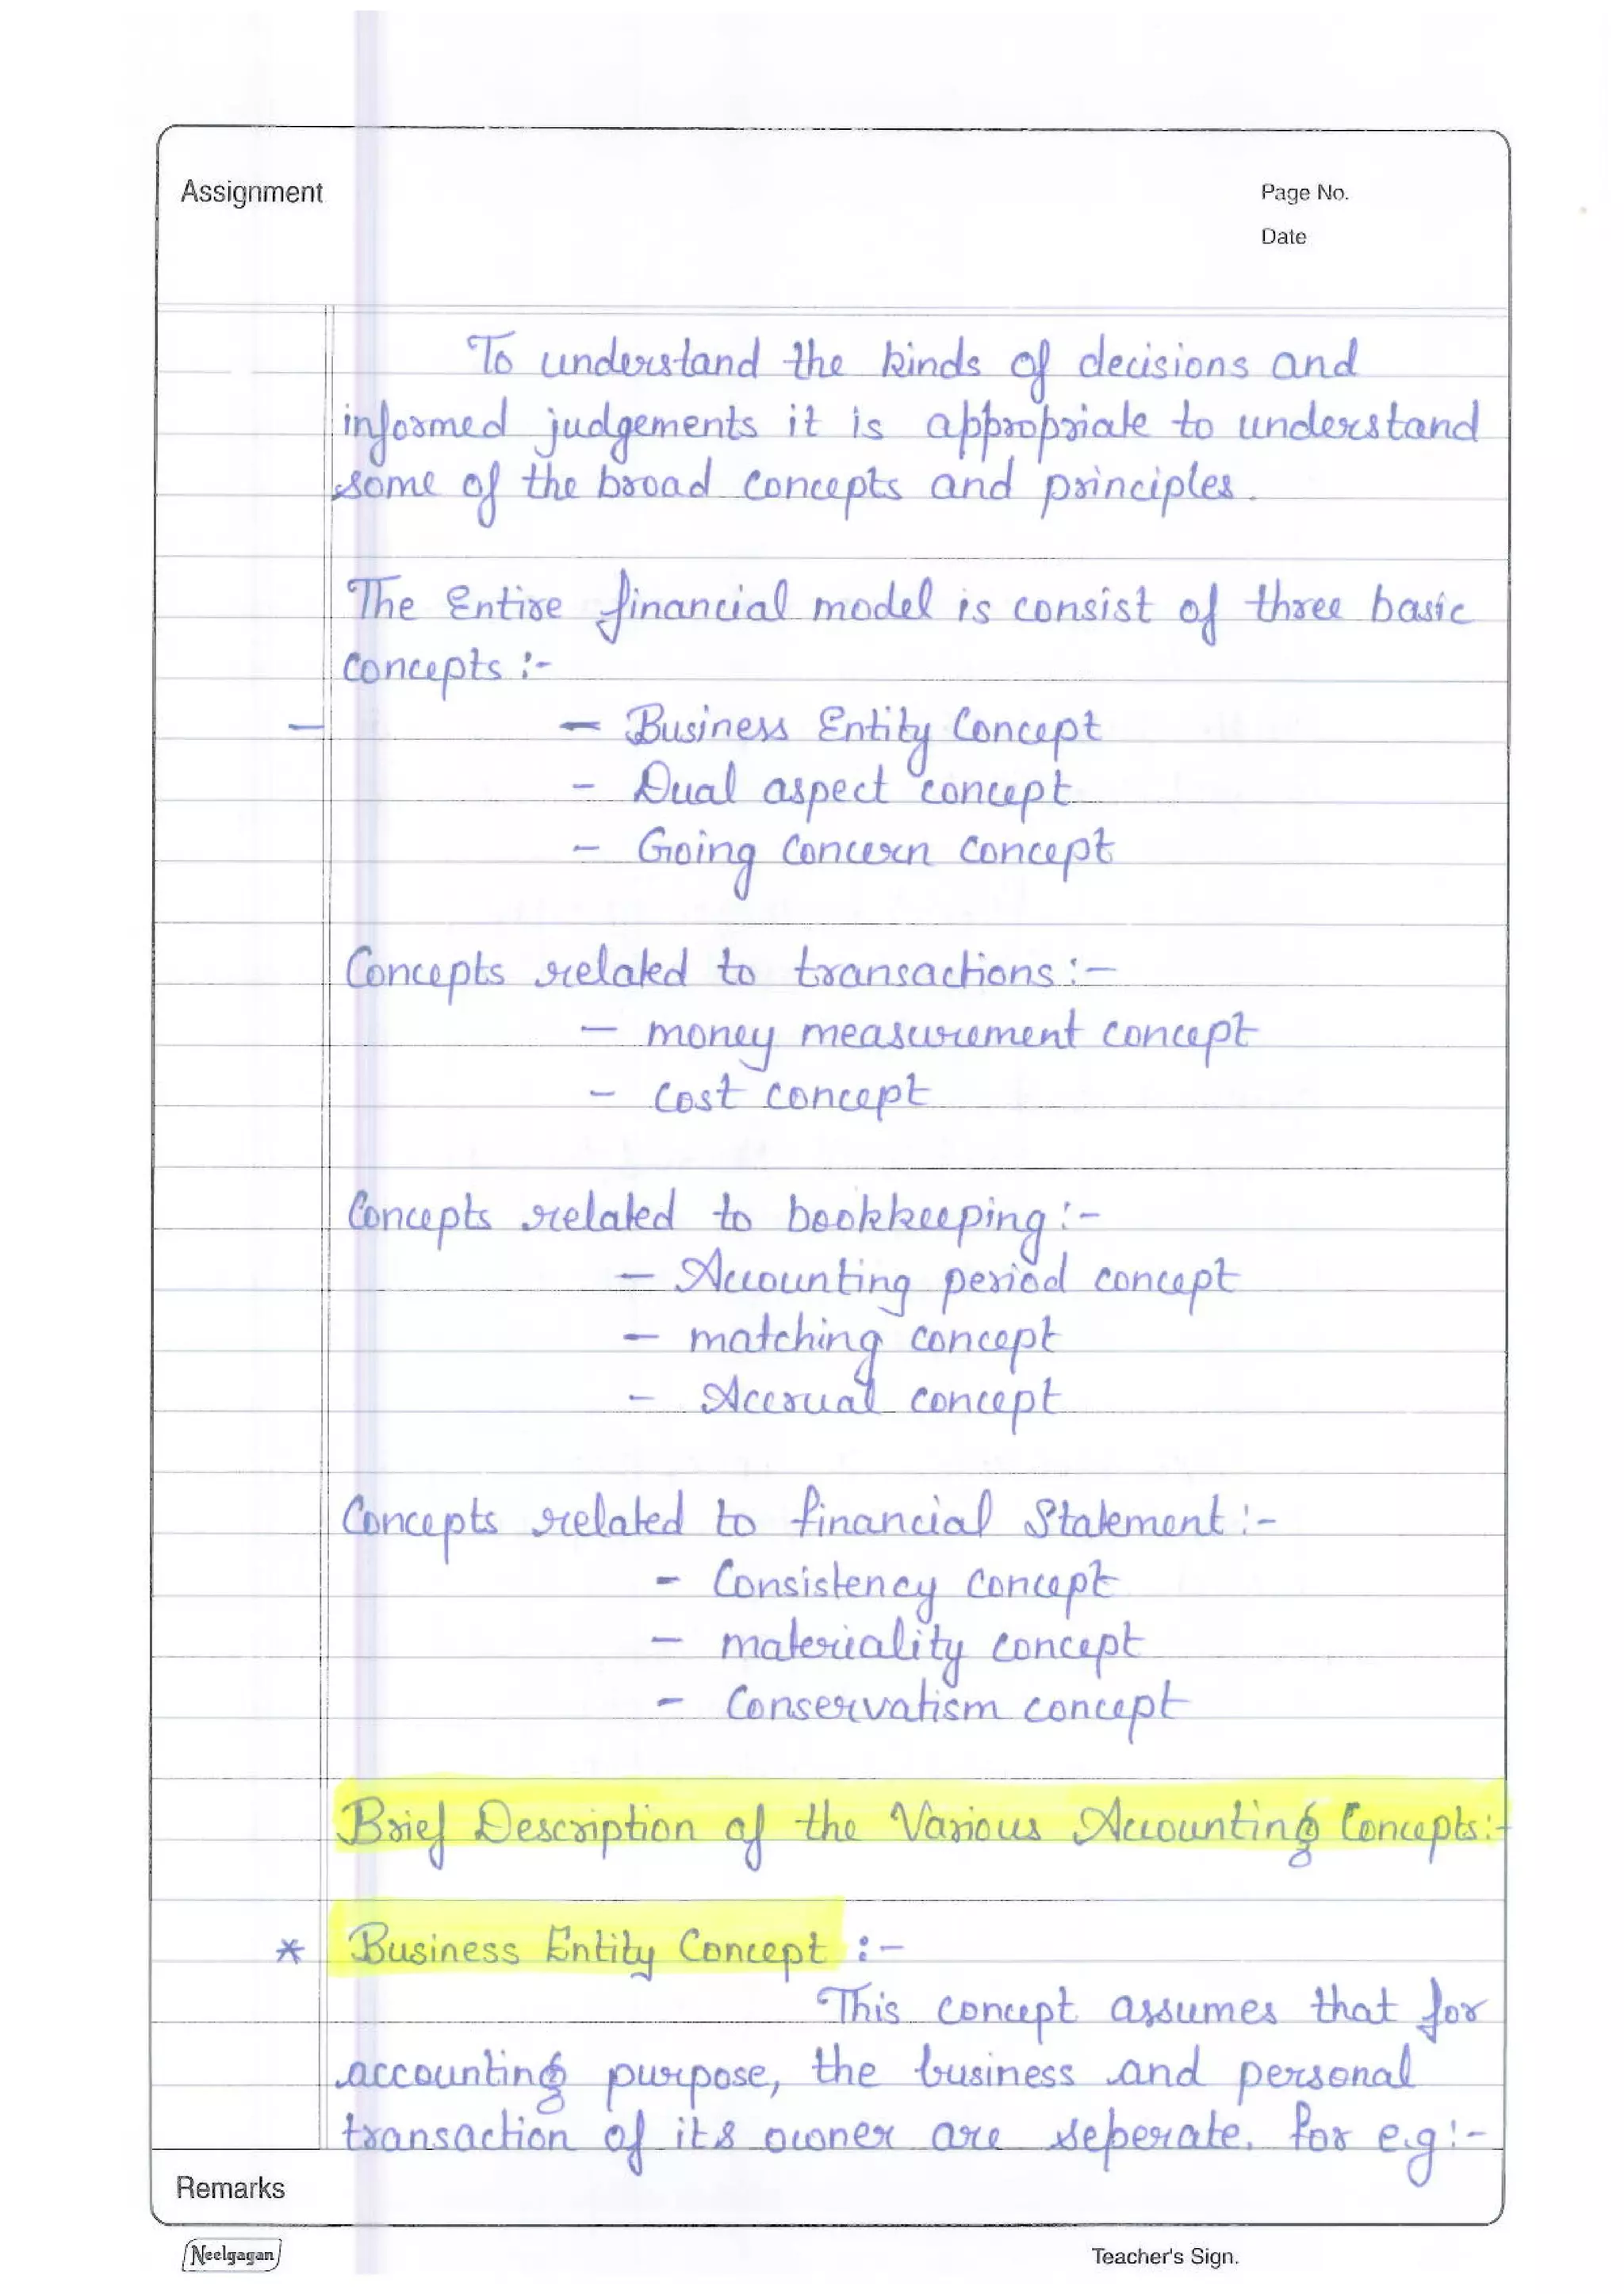 Assignment
Page No.
Date
To understand the kinds of decisions and
informed judgements it is appropriate to understand
some of the broad concepts and principles.
The Entire financial model is consist of three basic
concepts :-
— — Business Entity Concept
- Dual aspect concept
- Going Concern concept
Concepts related to transactions :—
— money measurement concept
- Cost concept
Concepts related to bookkeeping :-
— Accounting period concept
— matching concept
- Accrual concept
Concepts related to financial Statement :-
- Consistency concept
— materiality concept
- Conservatism concept
Brief Description of the Various Accounting Concepts:-
* Business Entity Concept :—
This concept assumes that for
accounting purpose, the business and personal
transaction of its owner are seperate. For e.g :-
Remarks
Neelgagan
Teacher's Sign.